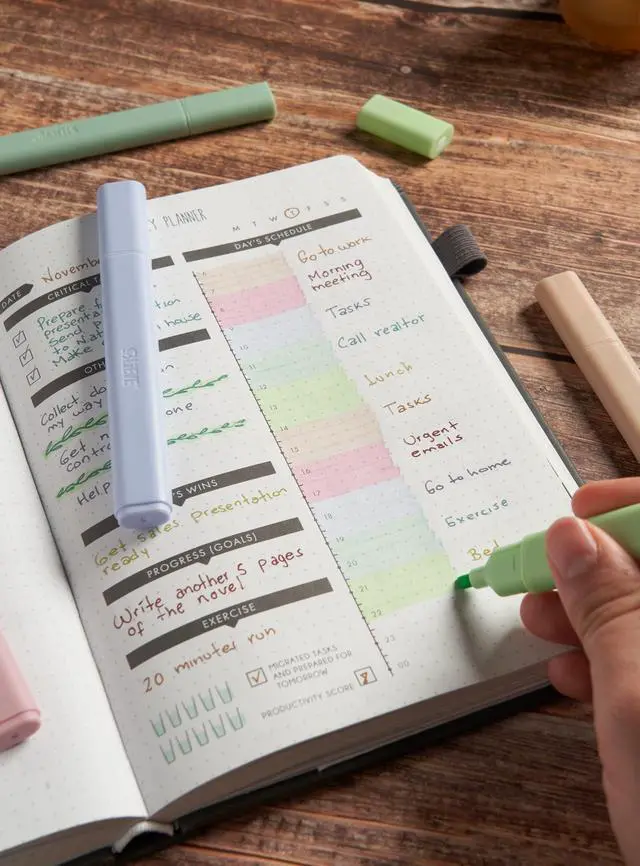 Y PLANNER
M T W T F S S
DATE
November
CRITICAL T
Prepare f
tion
presenta
Send p
house
to N
Make
OTH
Collect do
on
my way
one
Get n
contr
Help
'S WINS
Get sales presentation
ready
PROGRESS (GOALS)
Write another 5 pages
of the novel
EXERCISE
20 minutes run
MIGRATED TASKS
AND PREPARED FOR
TOMORROW
PRODUCTIVITY SCORE
DAY'S SCHEDULE
Go to work
Morning
meeting
Tasks
Call realtor
Lunch
Tasks
Urgent
emails
Go to home
Exercise
Bed
6
7
8
9
10
11
12
13
14
15
16
17
18
19
20
21
22
23
00